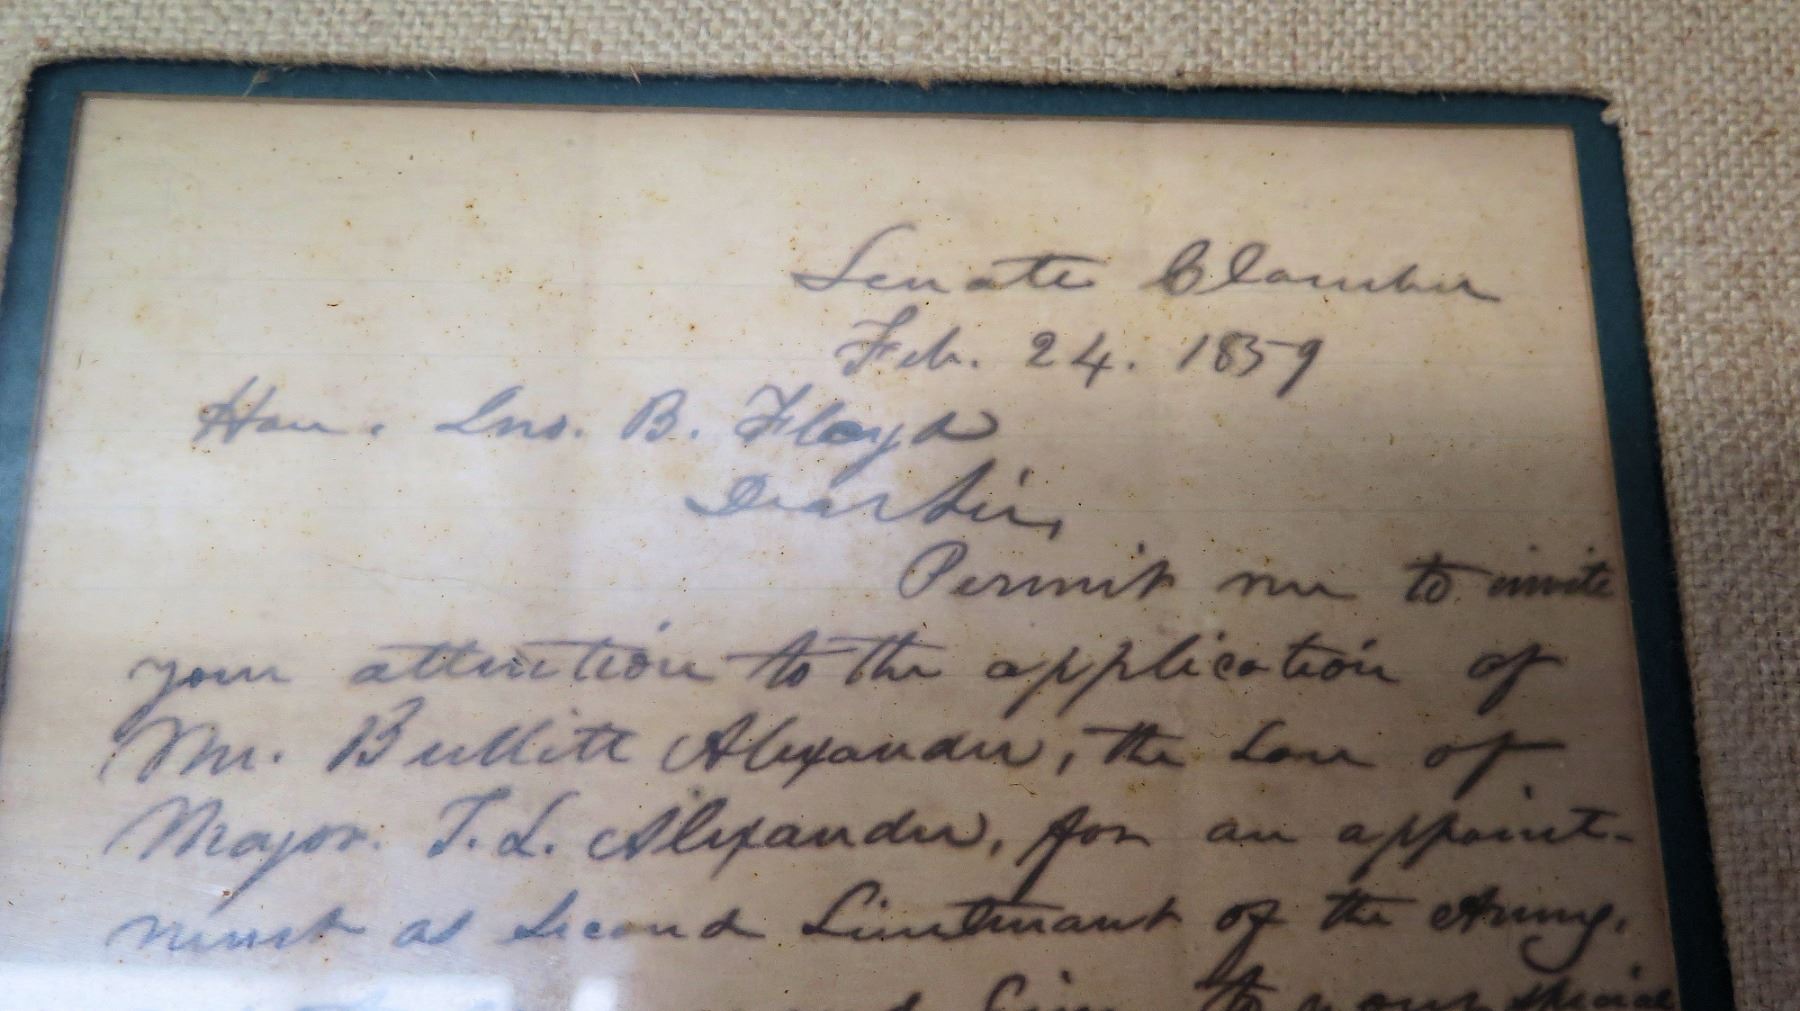 Senate Chamber
Feb. 24. 1859
Hon. Jno. B. Floyd
Dear Sir,
Permit me to invite
your attention to the application of
Mr. Bullitt Alexander, the son of
Major. T. L. Alexander, for an appoint-
ment as Second Lieutenant of the Army.
to your special